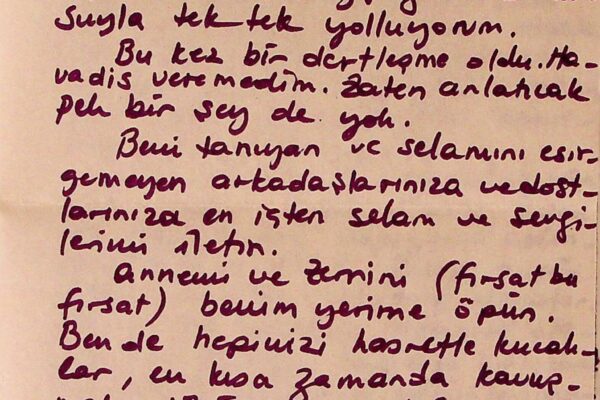 suyla tek tek yolluyorum.
Bu kez bir dertleşme oldu. Ha-
vadis veremedim. Zaten anlatıcak
pek bir şey de yok.
Beni tanıyan ve selamını esir-
gemeyen arkadaşlarınıza ve dost-
larınıza en içten selam ve sevgi-
lerimi iletin.
Annemi ve Zernini (fırsat bu
fırsat) benim yerime öpün.
Ben de hepinizi hasretle kucak-
lar, en kısa zamanda kavuş-